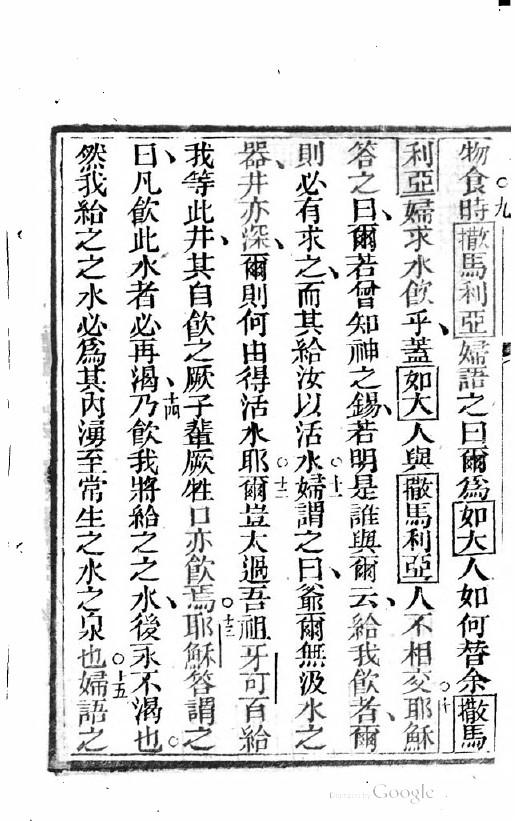 物食時○九撒馬利亞婦語之曰爾爲如大人如何替余撒馬
利亞婦求水飲乎、蓋如大人與撒馬利亞人不相交○十耶穌
答之曰、爾若曾知神之錫、若明是誰與爾云、給我飲者、爾
則必有求之、而其給汝以活水○十一婦謂之曰、爺爾無汲水之
器、井亦深、爾則何由得活水耶○十二爾豈太過吾祖牙可百給
我等此井、其自飲之厥子輩厥牲口亦飲焉○十三耶穌答謂之
曰、凡飲此水者必再渴、十四乃飲我將給之之水、後永不渴也○
然我給之之水必爲其內湧至常生之水之泉也○十五婦語之
Digitized by Google